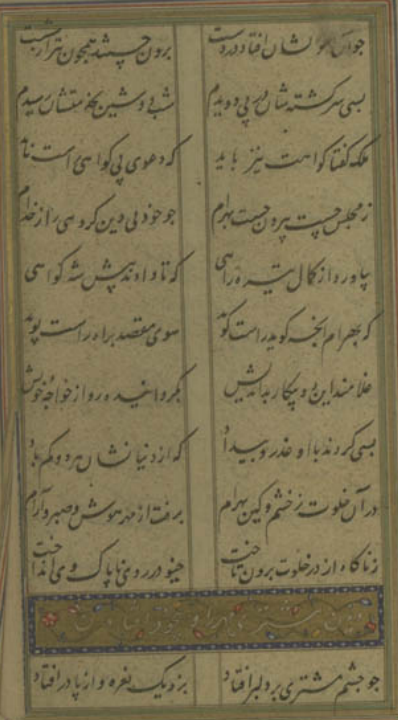 افتاد در دست برون جستند همچون تیر از شست
بسی سرگشته شان در پی دویدم شب دوشین رسیدم
ملک گفتا گواهت نیز باید که دعوی بی گواهی راست ناید
ز مجلس جست بیرون جست بهرام چو خود بی دین گروهی را ز خدام
بیاورد از کمال تیره راهی که تا دادند پیش شه گواهی
که بهرام انچه گوید راست گوید سوی مقصد براه راست پوید
غلامند این دو بداندیش بگردانیده رو از خواجه خویش
بسی کردند با او غدر و بیداد که از دنیا نشان هر دو کم باد
در آن خلوت ز خشم و کین بهرام برفت از مهر هوش و صبر و آرام
ز ناگاه از در خلوت برون تاخت خیو در روی ناپاک وی انداخت
دیدن مشتری مهر را و بیخود افتادن
چو چشم مشتری بر دلبر افتاد بزد یک نعره و از پا در افتاد